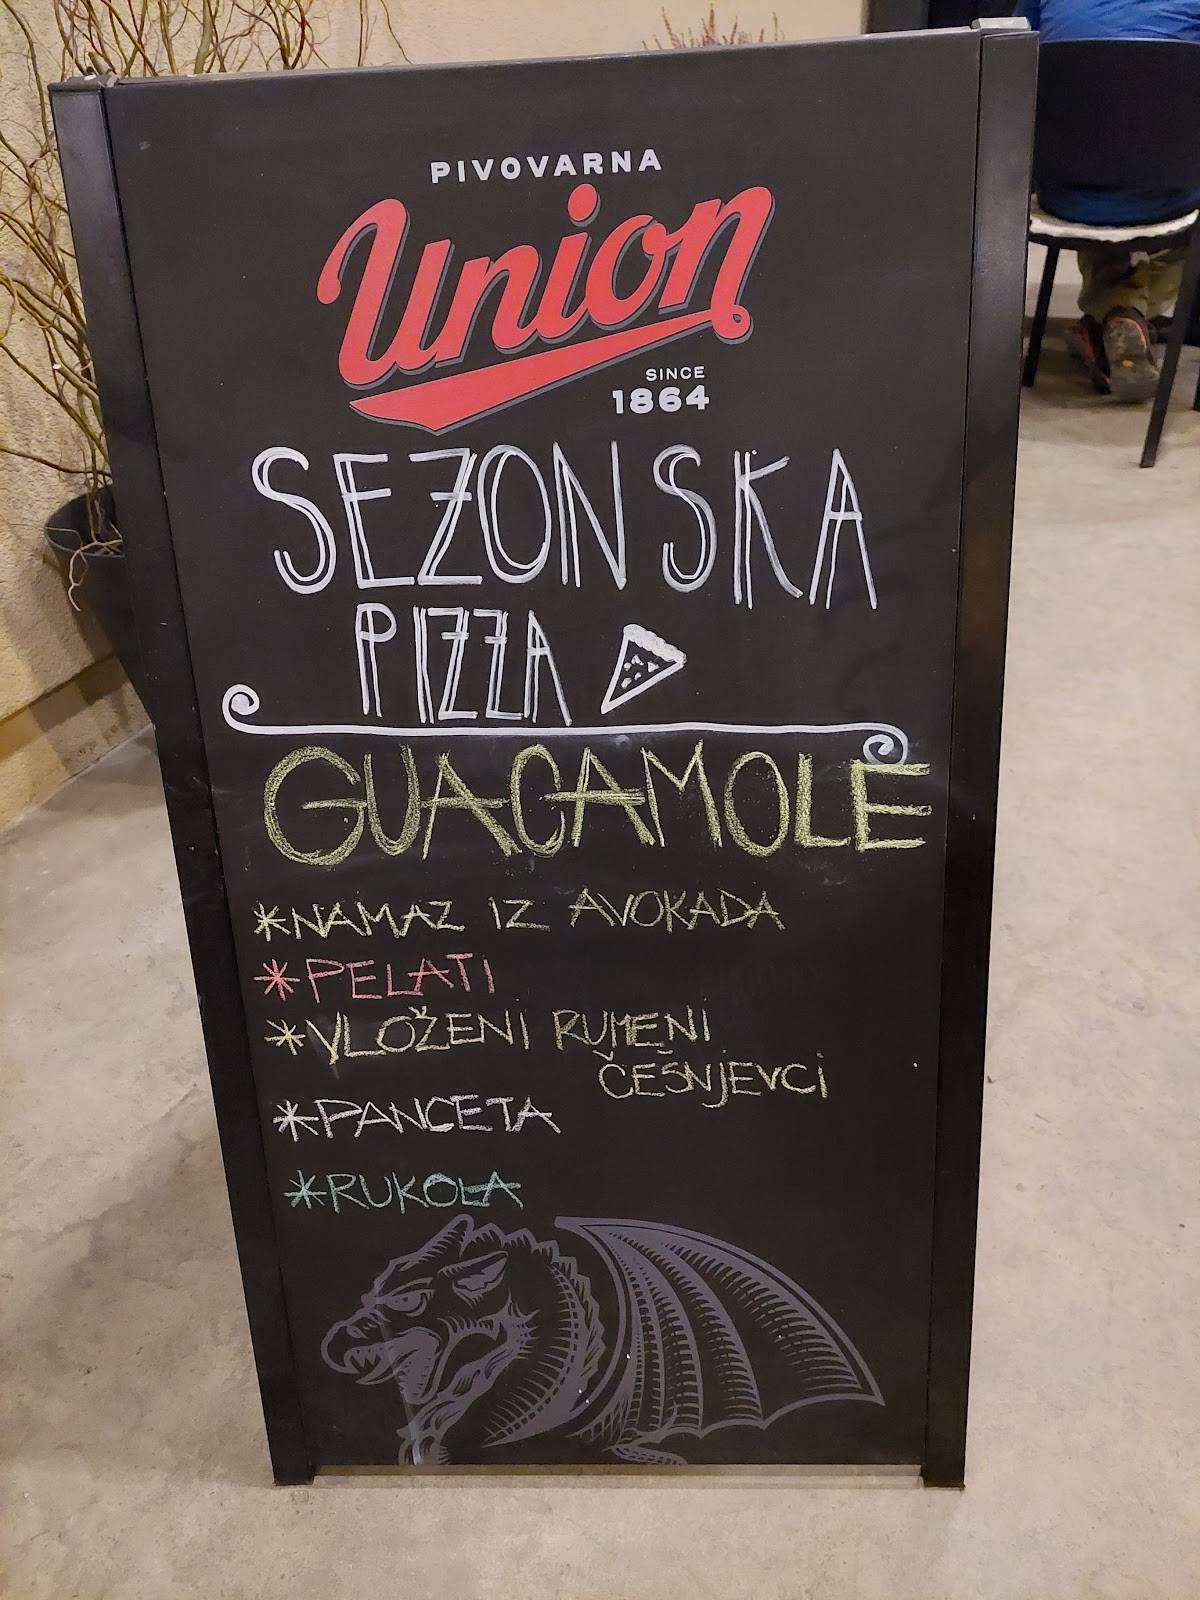 PIVOVARNA
Union
SINCE
1864
SEZONSKA
PIZZA
GUACAMOLE
*NAMAZ IZ AVOKADA
*PELATI
*VLOŽENI RUMENI
ČEŠNJEVCI
*PANCETA
*RUKOLA